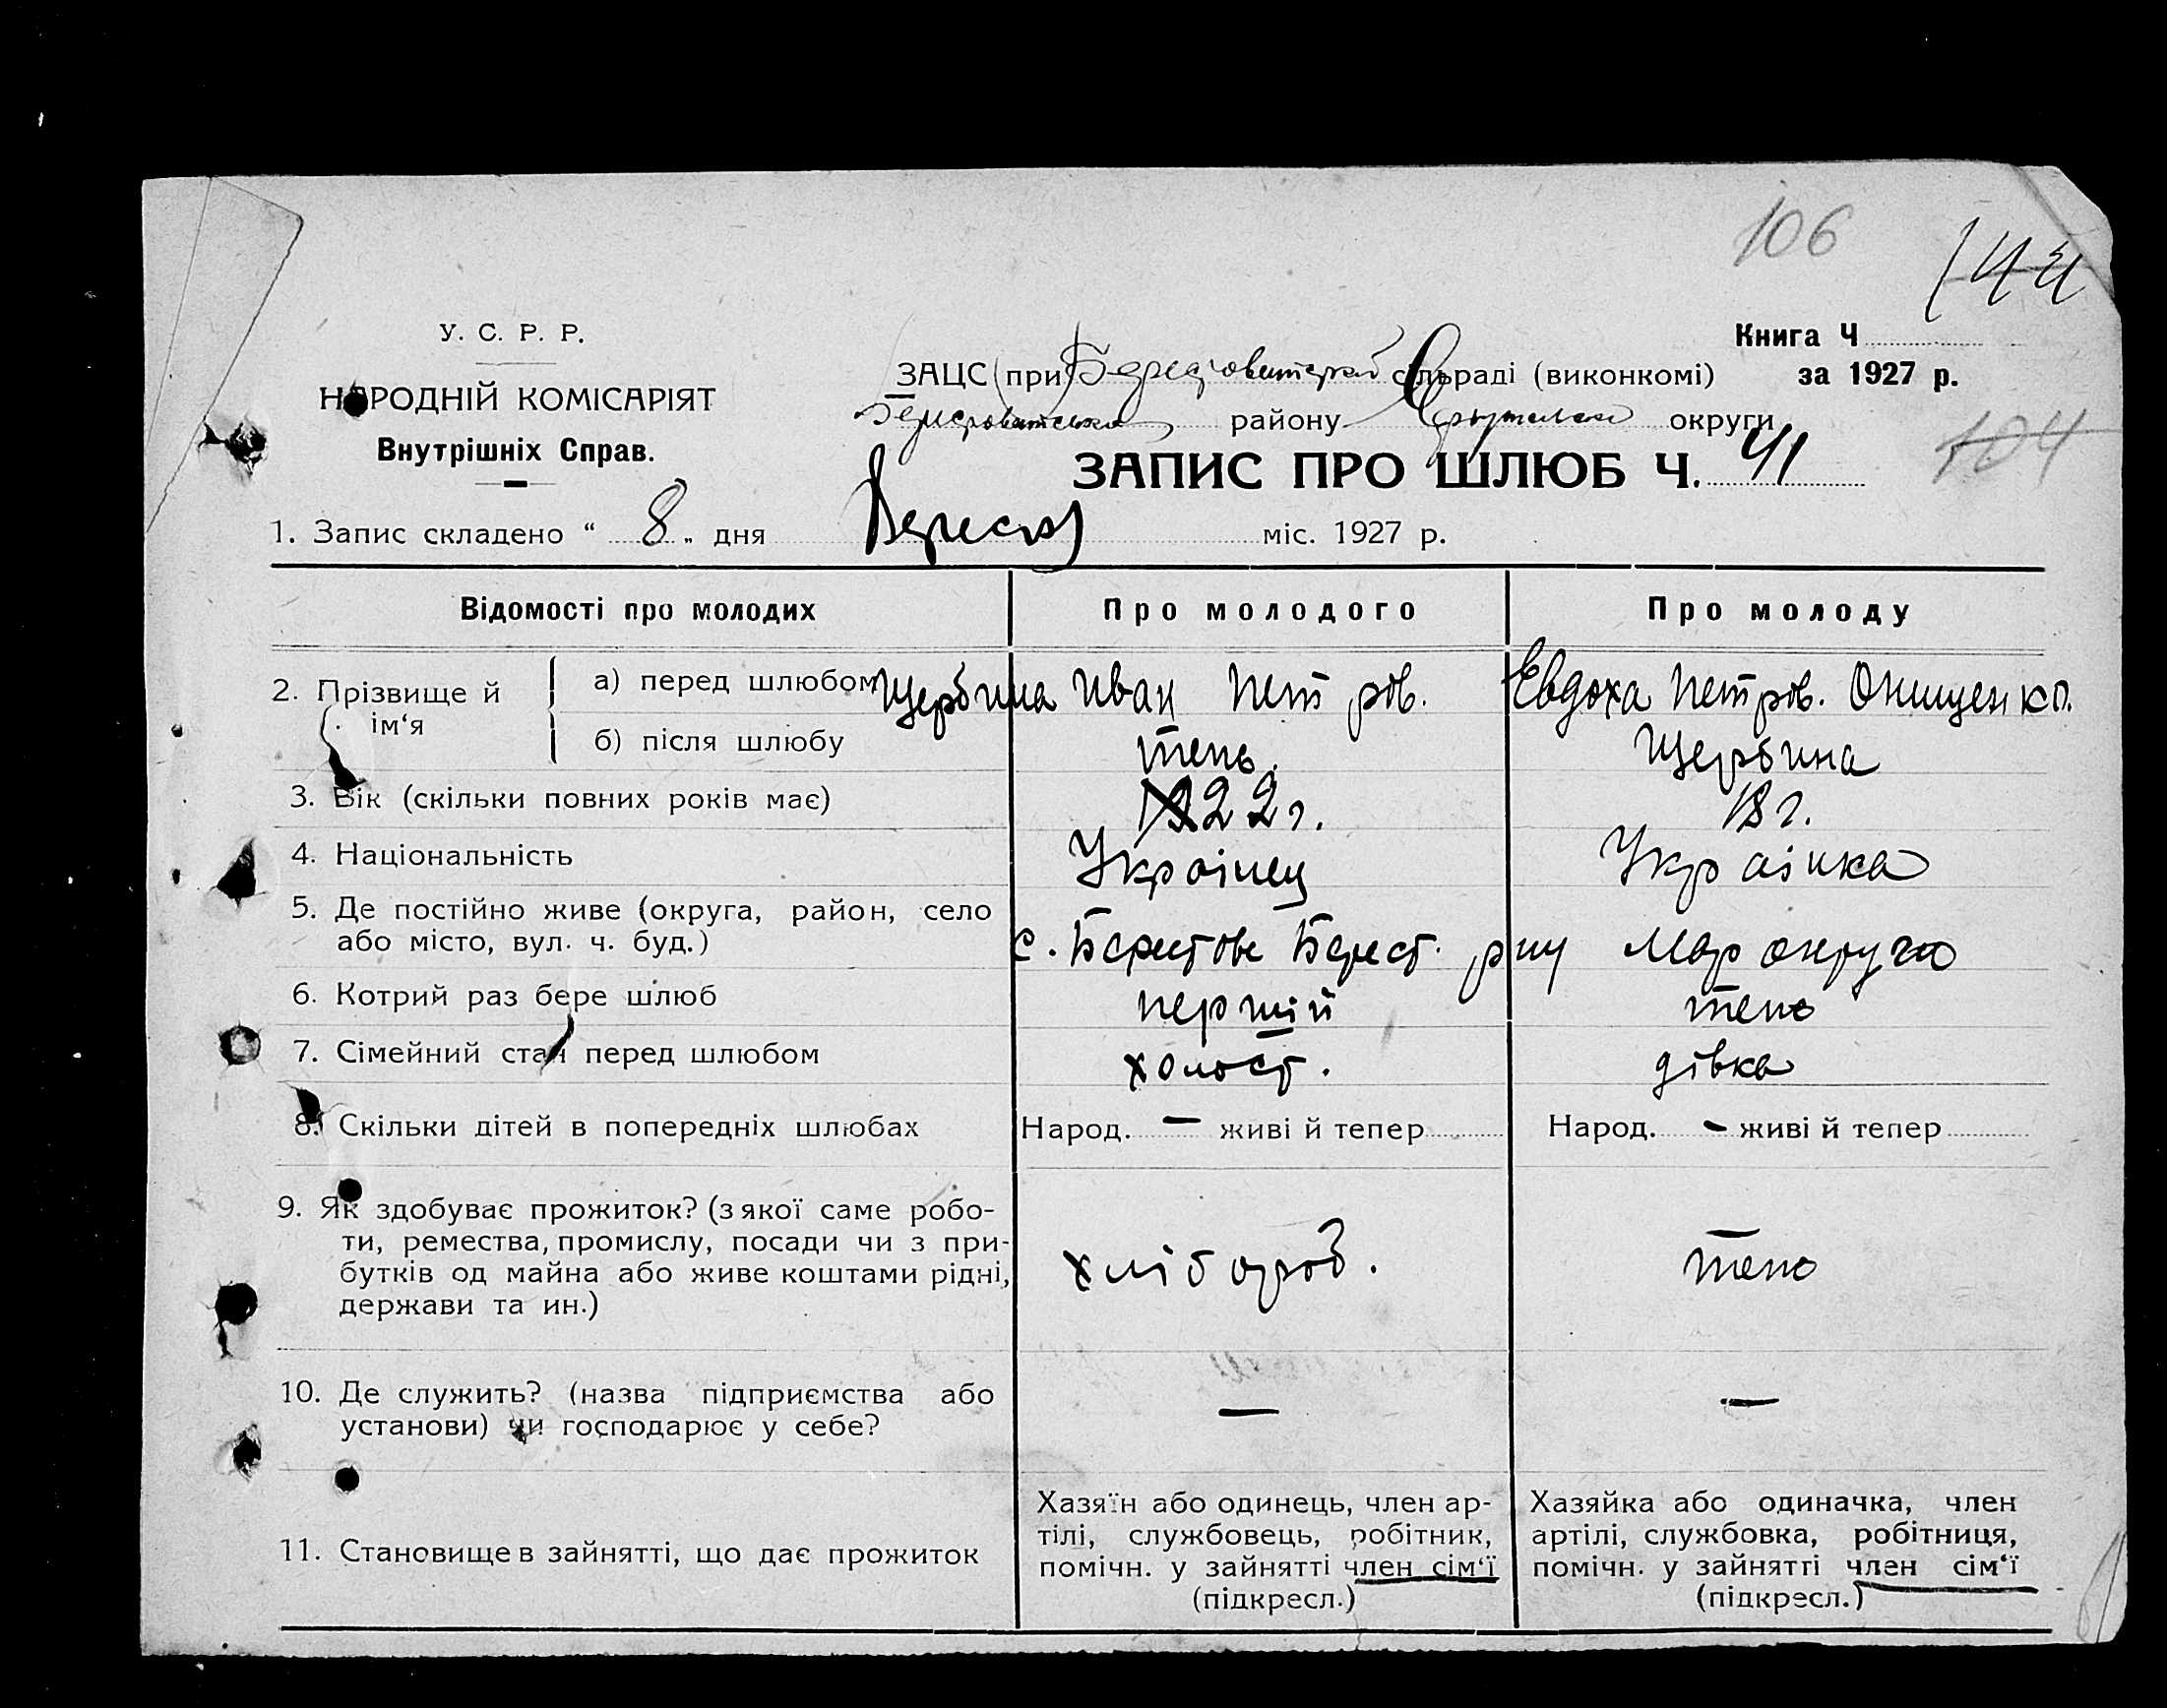 106
144
У. С. Р. Р.
НАРОДНІЙ КОМІСАРІЯТ
Внутрішніх Справ.
Книга Ч
за 1927 р.
ЗАЦС (при сільраді (виконкомі)
району округи
104
ЗАПИС ПРО ШЛЮБ Ч. 41
1. Запис складено “ 8 „ дня Вересня міс. 1927 р.
Відомості про молодих Про молодого Про молоду
2. Прізвище й ім‘я
а) перед шлюбом Щербина Иван Петров. Евдоха Петров. Онищенко.
б) після шлюбу тепь. Щербина
3. Вік (скільки повних років має) 22 г. 18 г.
4. Національність Украінец Украінка
5. Де постійно живе (округа, район, село
або місто, вул. ч. буд.) с. Берестове Берест. р-ну Мар округа
6. Котрий раз бере шлюб перший тепо
7. Сімейний стан перед шлюбом холост. дівка
8. Скільки дітей в попередніх шлюбах Народ. — живі й тепер Народ. — живі й тепер
9. Як здобуває прожиток? (з якої саме робо-
ти, ремества, промислу, посади чи з при-
бутків од майна або живе коштами рідні, хлібороб. тепо
держави та ин.)
10. Де служить? (назва підприємства або
установи) чи господарює у себе? — —
11. Становище в зайнятті, що дає прожиток
Хазяїн або одинець, член ар-
тілі, службовець, робітник,
помічн. у зайнятті член сім‘ї
(підкресл.)
Хазяйка або одиначка, член
артілі, службовка, робітниця,
помічн. у зайнятті член сім‘ї
(підкресл.)